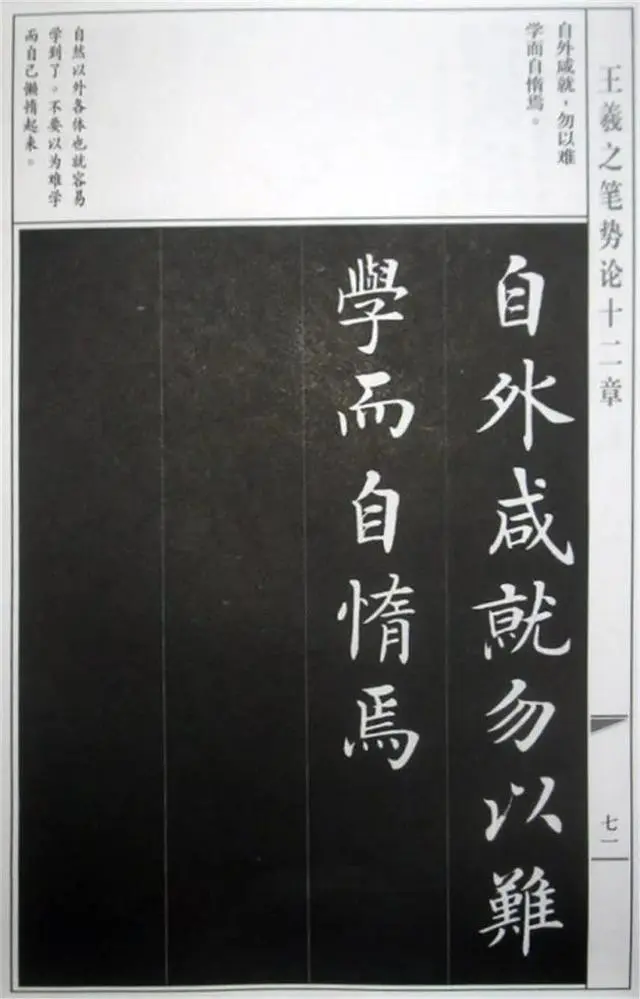 王羲之笔势论十二章
自外咸就，勿以难
学而自惰焉。
自然以外各体也就容易
学到了。不要以为难学
而自己懒惰起来。
自外咸就勿以難
學而自惰焉
七一